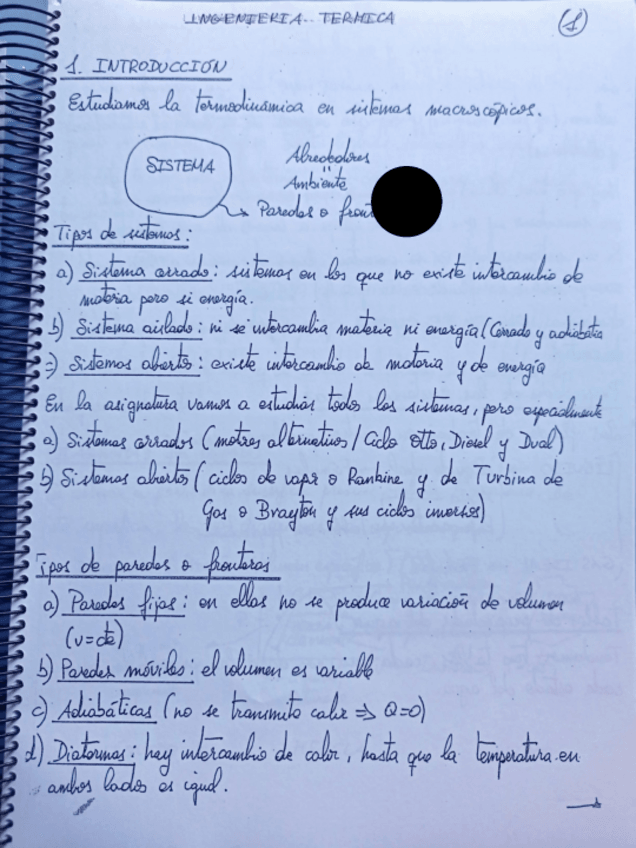 INGENIERIA TERMICA
1
1. INTRODUCCION
Estudiamos la termodinámica en sistemas macroscópicos.
SISTEMA
Alrededores
"
Ambiente
Paredes o
Tipos de sistemas:
a) Sistema cerrado: sistemas en los que no existe intercambio de
materia pero si energía.
b) Sistema aislado: ni se intercambia materia ni energía (Cerrado y adiabático
c) Sistemas abiertos: existe intercambio de materia y de energía
En la asignatura vamos a estudiar todos los sistemas, pero especialmente
a) Sistemas cerrados (motores alternativos / Ciclo Otto, Diesel y Dual)
b) Sistemas abiertos (ciclos de vapor o Rankine y de Turbina de
Gas o Brayton y sus ciclos inversos)
Tipos de paredes o fronteras
a) Paredes fijas: en ellas no se produce variación de volumen
(v=cte)
b) Paredes móviles: el volumen es variable
c) Adiabáticas (no se transmite calor ⇒ Q=0)
d) Diatermas: hay intercambio de calor, hasta que la temperatura en
ambos lados es igual.